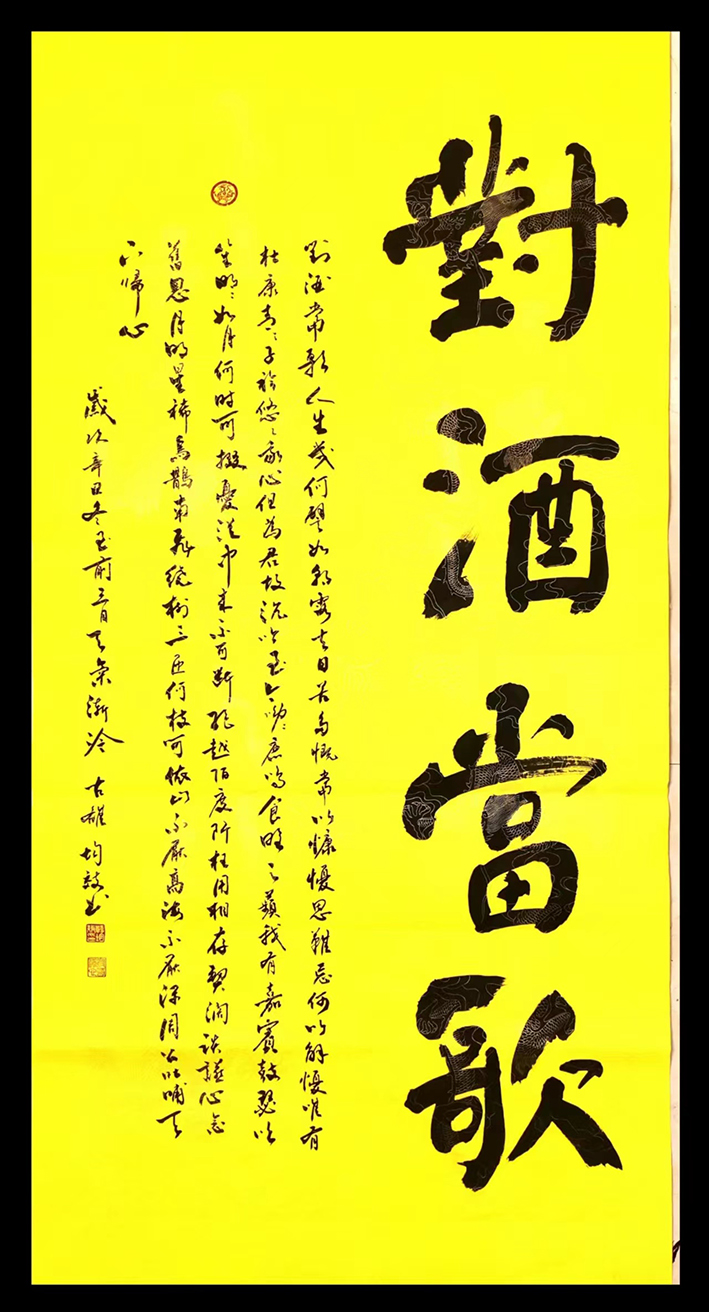 對酒當歌
對酒當歌人生幾何譬如朝露去日苦多慨當以慷懮思難忘何以解懮唯有
杜康青〻子衿悠〻我心但為君故沉吟至今呦〻鹿鳴食野之蘋我有嘉賓鼓瑟吹
笙明〻如月何時可掇憂從中來不可斷絕越陌度阡枉用相存契闊談讌心念
舊恩月明星稀烏鵲南飛繞樹三匝何枝可依山不厭高海不厭深周公吐哺天
下歸心
歲次辛丑冬至前三日天氣漸冷 古雄 均書